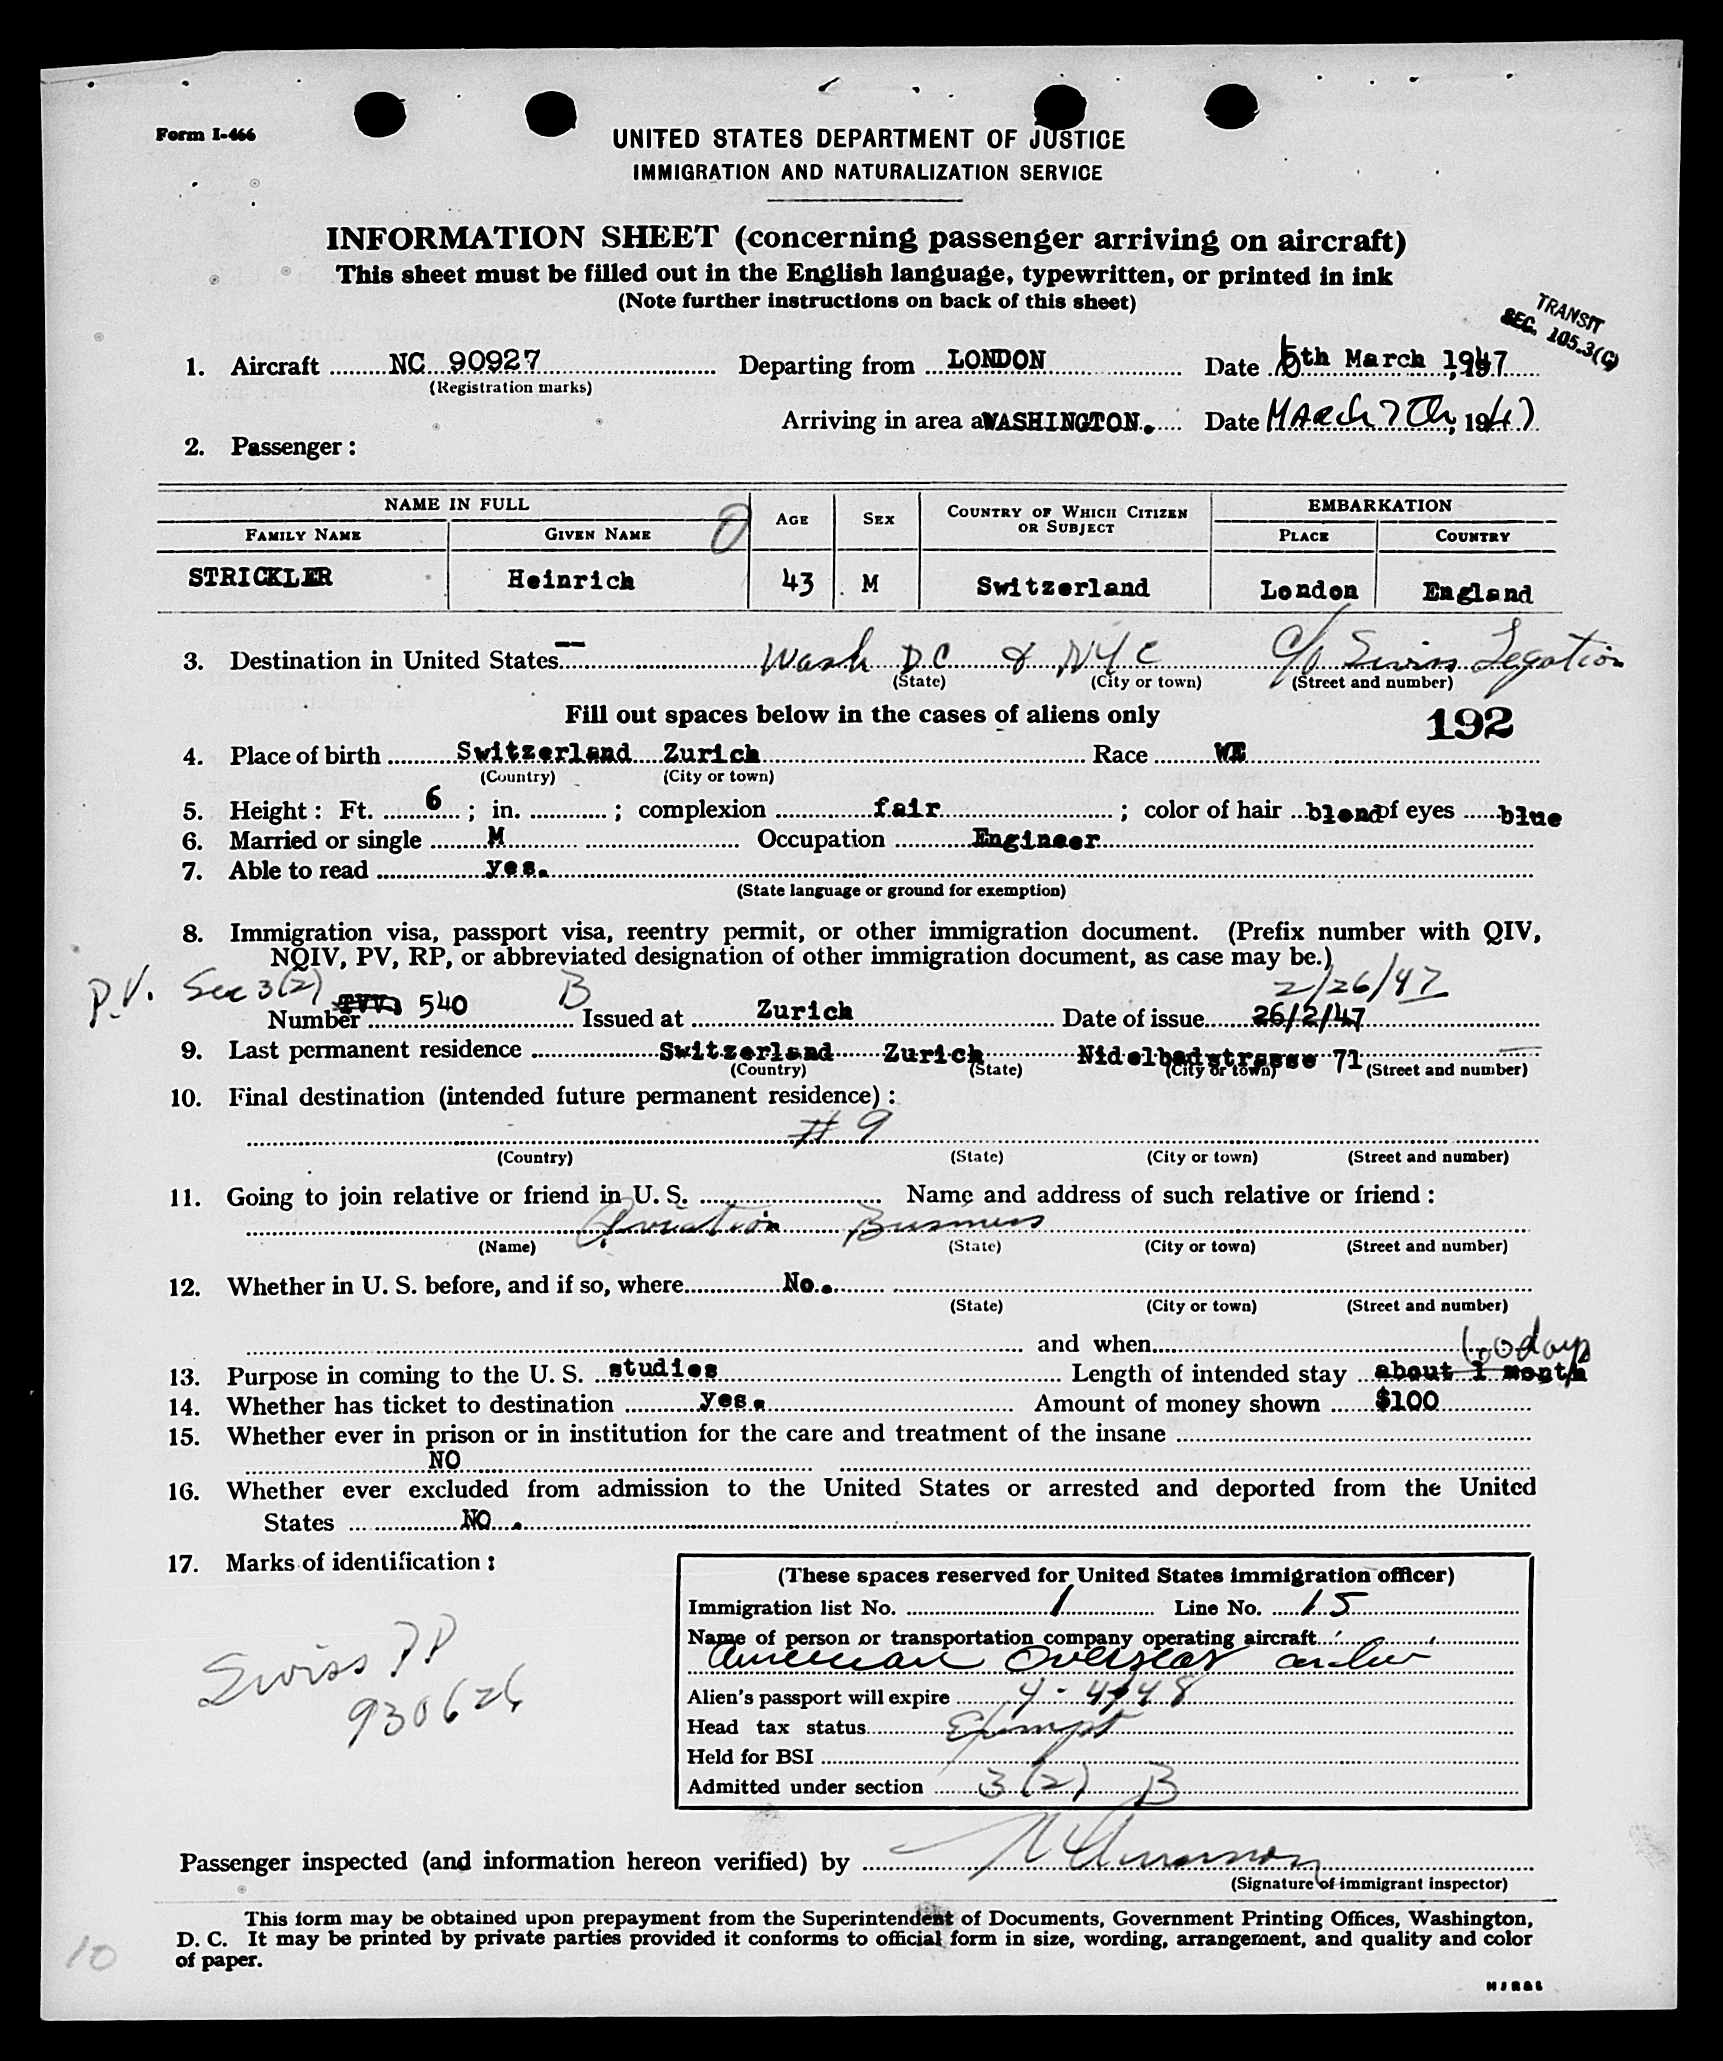 Form I-466
UNITED STATES DEPARTMENT OF JUSTICE
IMMIGRATION AND NATURALIZATION SERVICE
INFORMATION SHEET (concerning passenger arriving on aircraft)
This sheet must be filled out in the English language, typewritten, or printed in ink
(Note further instructions on back of this sheet)
TRANSIT
SEC. 105.3(C)
1. Aircraft NC 90927 Departing from LONDON Date 6th March 1947
(Registration marks)
Arriving in area a WASHINGTON. Date MARCH 7Th, 1947
2. Passenger :
NAME IN FULL AGE SEX COUNTRY OF WHICH CITIZEN OR SUBJECT EMBARKATION
FAMILY NAME GIVEN NAME PLACE COUNTRY
STRICKLER Heinrich 43 M Switzerland London England
3. Destination in United States Wash DC & NYC c/o Swiss Legation
(State) (City or town) (Street and number)
Fill out spaces below in the cases of aliens only
192
4. Place of birth Switzerland Zurich Race WE
(Country) (City or town)
5. Height : Ft. 6 ; in. ; complexion fair ; color of hair blond of eyes blue
6. Married or single M Occupation Engineer
7. Able to read yes.
(State language or ground for exemption)
8. Immigration visa, passport visa, reentry permit, or other immigration document. (Prefix number with QIV,
NQIV, PV, RP, or abbreviated designation of other immigration document, as case may be.)
P.V. Sec 3(2) B 2/26/47
Number 540 Issued at Zurich Date of issue 26/2/47
9. Last permanent residence Switzerland Zurich Nidelbadstrasse 71
(Country) (State) (City or town) (Street and number)
10. Final destination (intended future permanent residence) :
# 9
(Country) (State) (City or town) (Street and number)
11. Going to join relative or friend in U. S. Name and address of such relative or friend :
Aviation Business
(Name) (State) (City or town) (Street and number)
12. Whether in U. S. before, and if so, where No.
(State) (City or town) (Street and number)
and when
60 days
13. Purpose in coming to the U. S. studies Length of intended stay about 1 month
14. Whether has ticket to destination yes. Amount of money shown $100
15. Whether ever in prison or in institution for the care and treatment of the insane
NO
16. Whether ever excluded from admission to the United States or arrested and deported from the United
States NO.
17. Marks of identification :
Swiss PP
930626
(These spaces reserved for United States immigration officer)
Immigration list No. 1 Line No. 15
Name of person or transportation company operating aircraft
American Overseas
Alien's passport will expire 4-4-48
Head tax status Exempt
Held for BSI
Admitted under section 3(2) B
Passenger inspected (and information hereon verified) by
(Signature of immigrant inspector)
This form may be obtained upon prepayment from the Superintendent of Documents, Government Printing Offices, Washington,
D. C. It may be printed by private parties provided it conforms to official form in size, wording, arrangement, and quality and color
of paper.
10